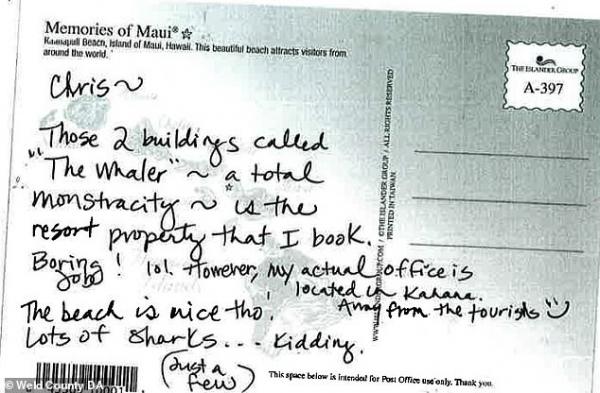 Memories of Maui® ☆
Kaanapali Beach, Island of Maui, Hawaii. This beautiful beach attracts visitors from
around the world.
THE ISLANDER GROUP
A-397
Chris ~
Those 2 buildings called
"The Whaler" ~ a total
monstracity ~ is the
resort property that I book.
Boring job! lol. However, my actual office is
located in Kahana.
Away from the tourists
The beach is nice tho.
Lots of sharks... kidding.
(Just a
few)
ISLANDERGROUP.COM / ©THE ISLANDER GROUP / ALL RIGHTS RESERVED
PRINTED IN TAIWAN
This space below is intended for Post Office use only. Thank you.
© Weld County DA